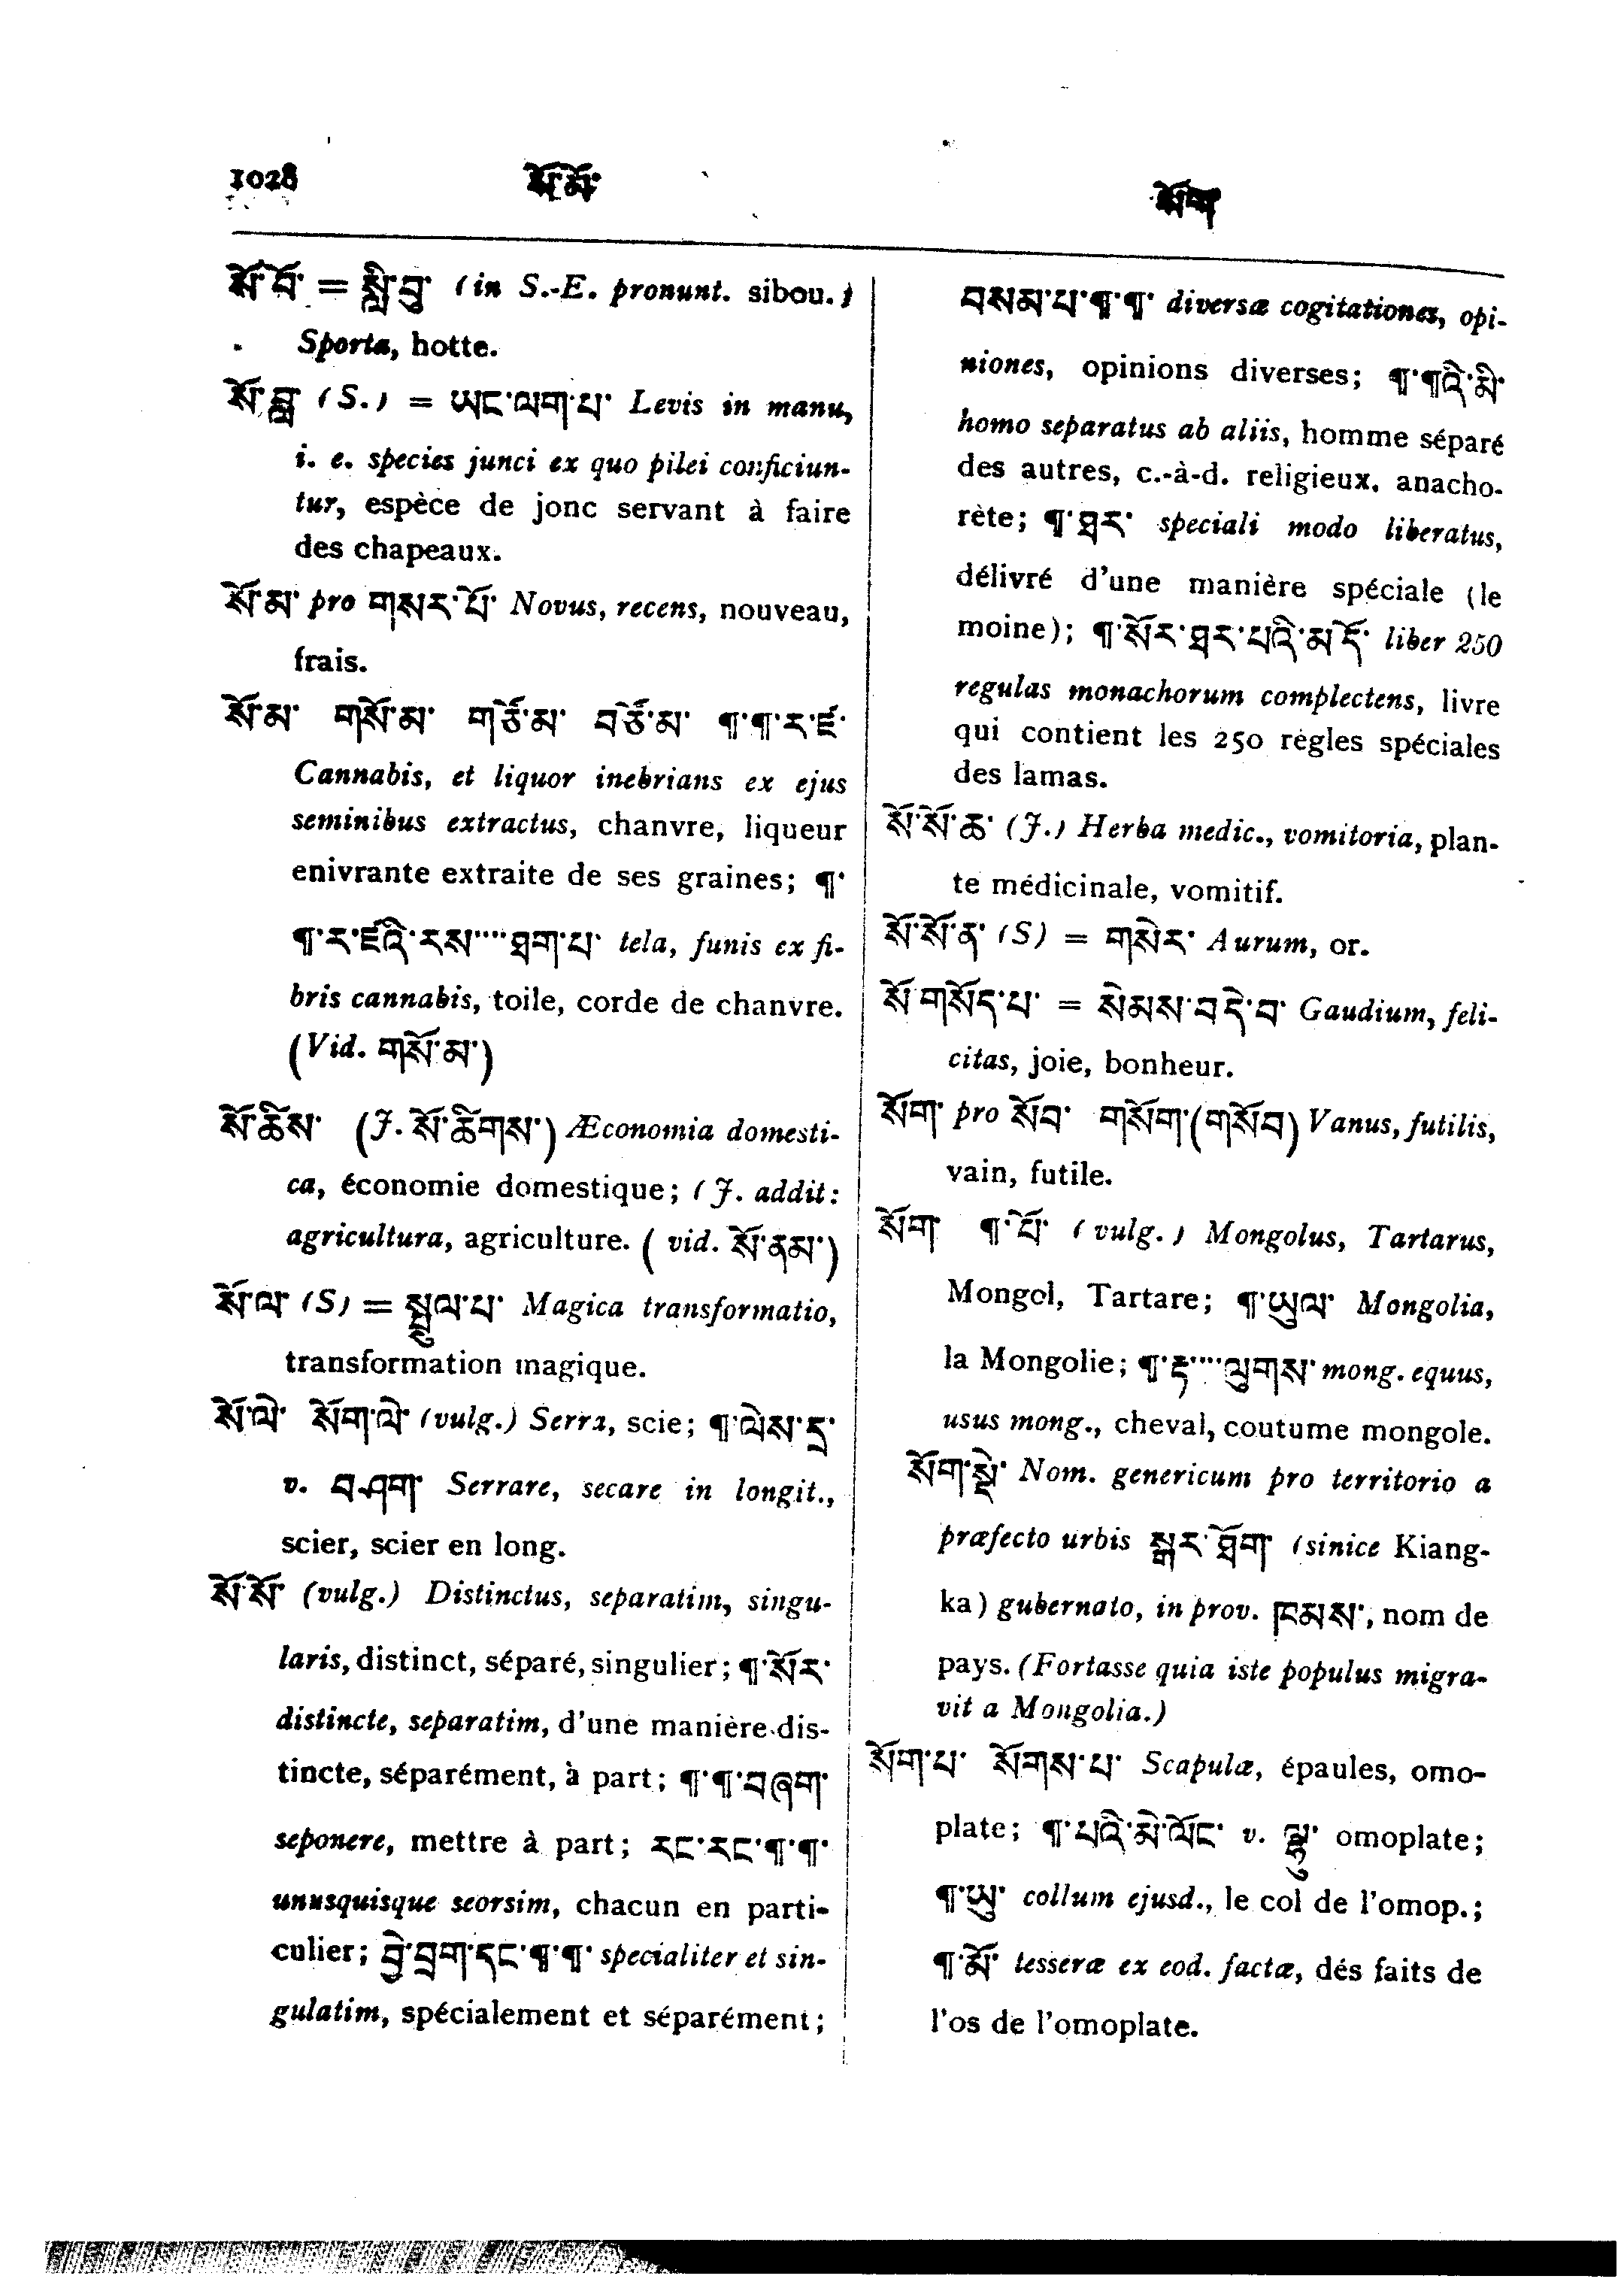 1028
སོ་མོ་
སོག
སོ་བོ་ = སླེ་བུ་ (in S.-E. pronunt. sibou.)
Sporta, hotte.
(S.) = ཡང་ལག་པ་ Levis in manu,
i. e. species junci ex quo pilei conficiun-
tur, espèce de jonc servant à faire
des chapeaux.
སོ་མ་ pro གསར་པོ་ Novus, recens, nouveau,
frais.
སོ་མ་ གསོ་མ་ གཙོ་མ་ བཙོ་མ་ ¶་¶་ར་ཛ་
Cannabis, et liquor inebrians ex ejus
seminibus extractus, chanvre, liqueur
enivrante extraite de ses graines; ¶་
¶་ར་ཛའི་རས་...ཐག་པ་ tela, funis ex fi-
bris cannabis, toile, corde de chanvre.
(Vid. གསོ་མ་)
སོ་ཚིས་ (J. སོ་ཚིགས་) Æconomia domesti-
ca, économie domestique; (J. addit:
agricultura, agriculture. (vid. སོ་ནམ་)
སོ་ལ་ (S) = སྤྲུལ་པ་ Magica transformatio,
transformation magique.
སོ་ལེ་ སོག་ལེ་ (vulg.) Serra, scie; ¶་ལེས་དྲ་
v. བཤག་ Serrare, secare in longit.,
scier, scier en long.
སོ་སོ་ (vulg.) Distinctus, separatim, singu-
laris, distinct, séparé, singulier; ¶་སོར་
distincte, separatim, d'une manière dis-
tincte, séparément, à part; ¶་¶་བཞག་
seponere, mettre à part; རང་རང་¶་¶་
unusquisque seorsim, chacun en parti-
culier; བྱེ་བྲག་དང་¶་¶་ specialiter et sin-
gulatim, spécialement et séparément;
བསམ་པ་¶་¶་ diversæ cogitationes, opi-
niones, opinions diverses; ¶་¶འི་མི་
homo separatus ab aliis, homme séparé
des autres, c.-à-d. religieux, anacho-
rète; ¶་ཐར་ speciali modo liberatus,
délivré d'une manière spéciale (le
moine); ¶་སོར་ཐར་པའི་མདོ་ liber 250
regulas monachorum complectens, livre
qui contient les 250 règles spéciales
des lamas.
སོ་སོ་ཆ་ (J.) Herba medic., vomitoria, plan-
te médicinale, vomitif.
སོ་སོ་ན་ (S) = གསེར་ Aurum, or.
སོ་གསོད་པ་ = སེམས་བདེ་བ་ Gaudium, feli-
citas, joie, bonheur.
སོག་ pro སོབ་ གསོག་(གསོབ) Vanus, futilis,
vain, futile.
སོག་ ¶་པོ་ (vulg.) Mongolus, Tartarus,
Mongol, Tartare; ¶་ཡུལ་ Mongolia,
la Mongolie; ¶་རྟ་...ལུགས་ mong. equus,
usus mong., cheval, coutume mongole.
སོག་སྡེ་ Nom. genericum pro territorio a
præfecto urbis སྒར་ཐོག་ (sinice Kiang-
ka) gubernato, in prov. ཁམས་, nom de
pays. (Fortasse quia iste populus migra-
vit a Mongolia.)
སོག་པ་ སོགས་པ་ Scapulæ, épaules, omo-
plate; ¶་པའི་མེ་ལོང་ v. ལྷུ་ omoplate;
¶་ཡུ་ collum ejusd., le col de l'omop.;
¶་མོ་ tesseræ ex eod. factæ, dés faits de
l'os de l'omoplate.